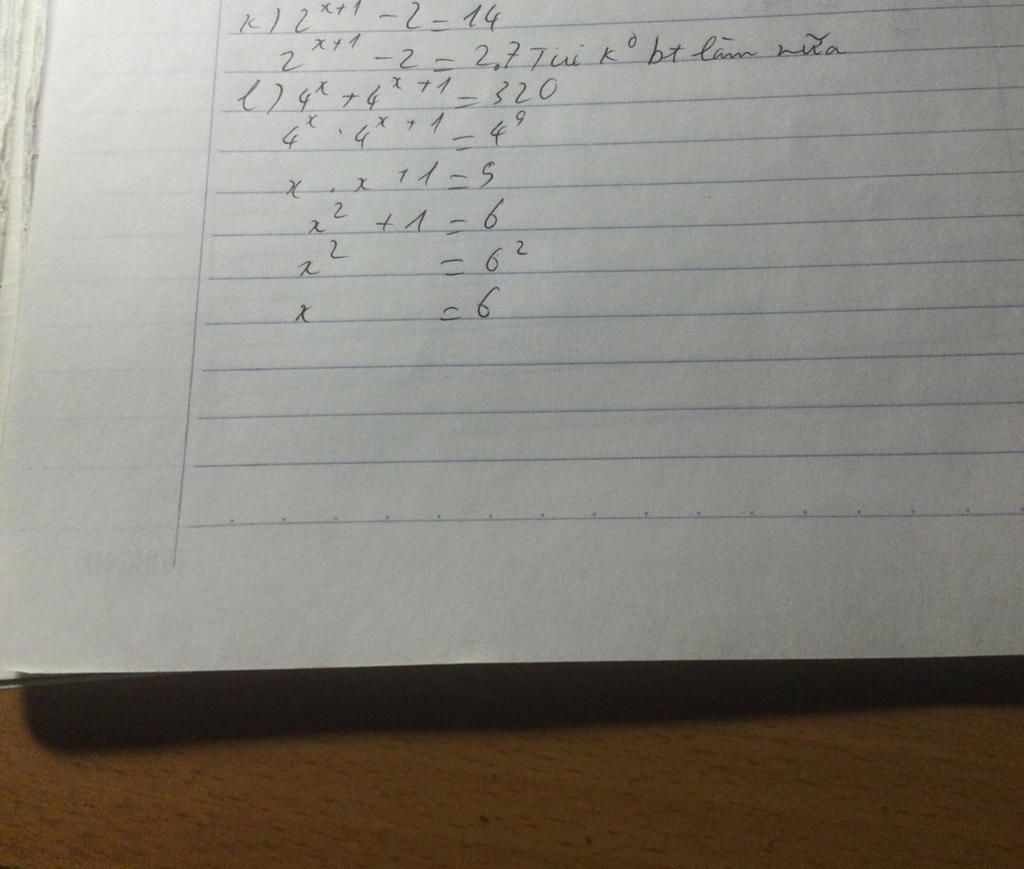 k) 2^{x+1} - 2 = 14
2^{x+1} - 2 = 2.7 Tui k⁰ bt làm nữa
l) 4^x + 4^{x+1} = 320
4^x . 4^{x+1} = 4^9
x . x + 1 = 5
x² + 1 = 6
x² = 6²
x = 6